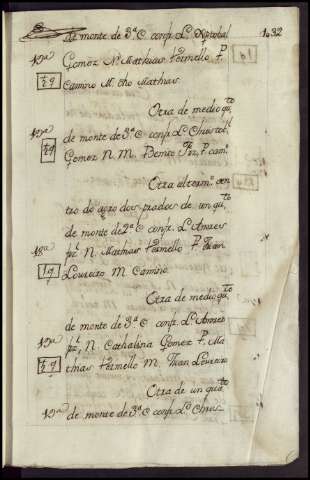 de monte de 3ª C confr. Lte Xptobal 1632
12ª Gomez N. Mathias Vermello P.
½ q Camino M. dho Mathias
Otra de medio qto
12ª de monte de 3ª C confr. Lte Christobl
½ q Gomez N. M. Benito Frz, P. camo
Otra al termo den
tro do agro dos prados de un qto
de monte de 2ª C confr. Lte Andres
18ª frz N. Mathias Vermello P. Juan
1 q Loureiro M Camino
Otra de medio qto
de monte de 3ª C confr. Lte Andres
12ª frz, N. Cathalina Gomez P. Ma
½ q thias Vermello M. Juan Loureiro
Otra de un quto
12ª de monte de 3ª C confr. Lte Chris